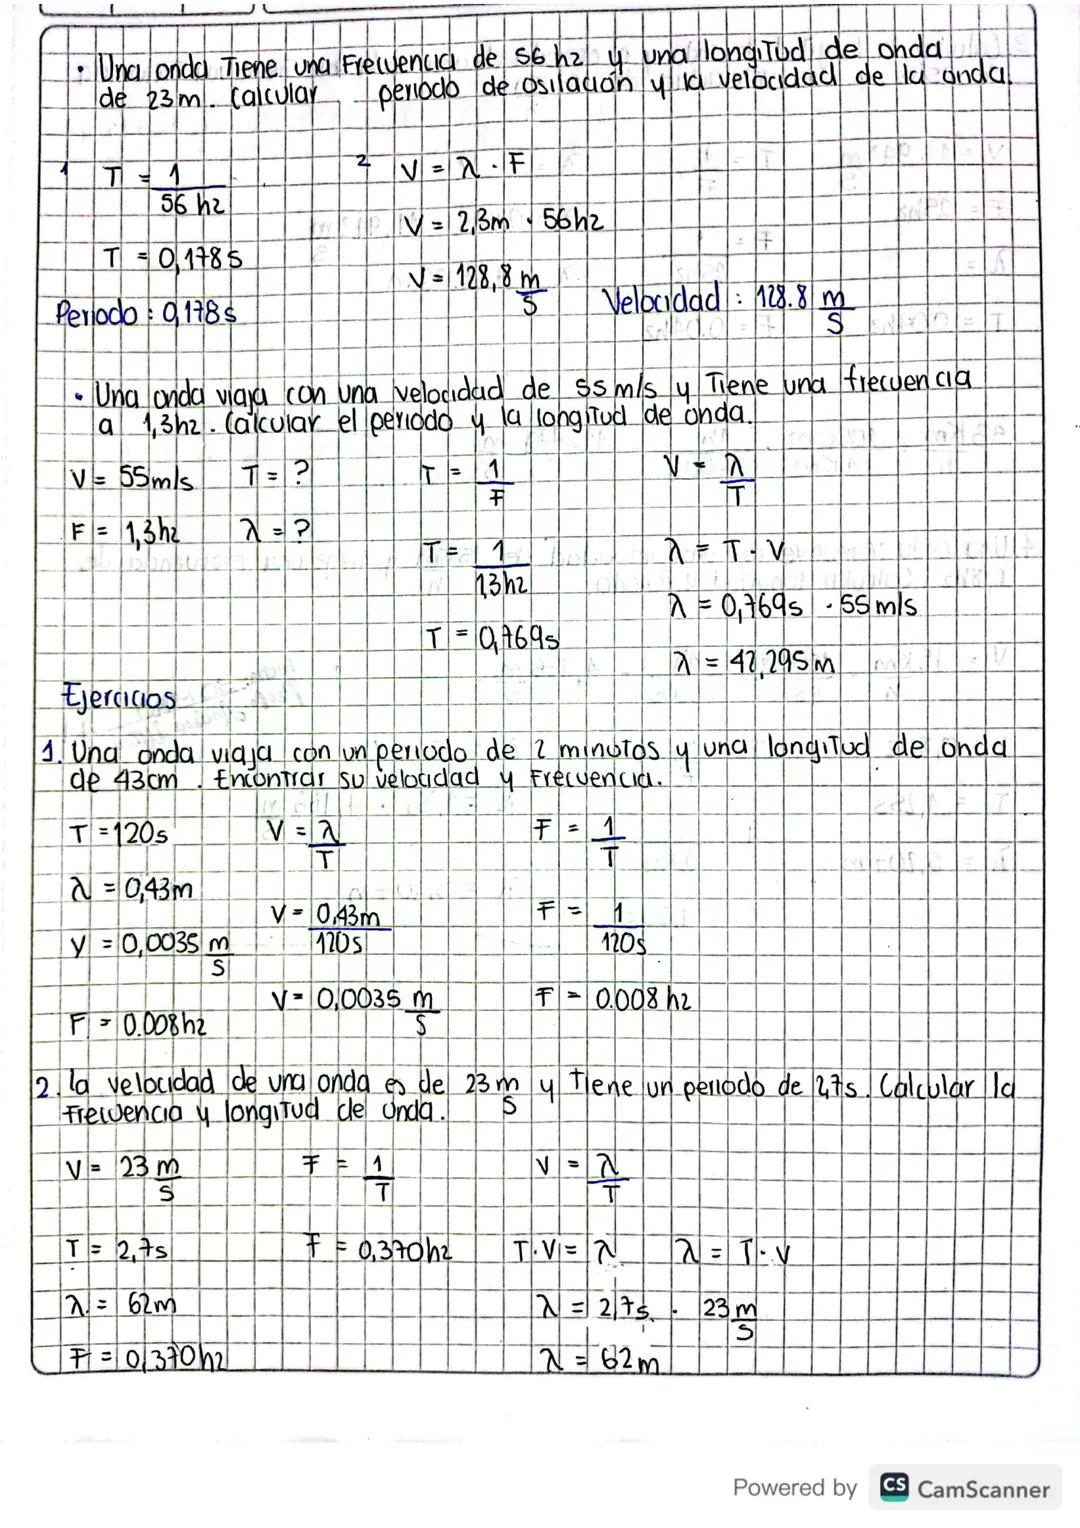 • Una onda Tiene una Frecuencia de 56 hz y una longitud de onda
de 23m. Calcular periodo de osilación y la velocidad de la onda.
1 T = 1
56 hz
T = 0,178s
Periodo : 0,178s
2 V = λ . F
V = 2,3m . 56hz
V = 128,8 m
S
Velocidad : 128.8 m
S
• Una onda viaja con una velocidad de 55 m/s y Tiene una frecuencia
a 1,3hz. Calcular el periodo y la longitud de onda.
V = 55m/s T = ?
F = 1,3hz λ = ?
T = 1
F
T = 1
1,3hz
T = 0,769s
V = λ
T
λ = T . V
λ = 0,769s . 55 m/s
λ = 42,295m
Ejercicios
1. Una onda viaja con un periodo de 2 minutos y una longitud de onda
de 43cm. Encontrar su velocidad y Frecuencia.
T = 120s
λ = 0,43m
V = 0,0035 m
S
F = 0.008hz
V = λ
T
V = 0,43m
120s
V = 0,0035 m
S
F = 1
T
F = 1
120s
F = 0.008 hz
2. la velocidad de una onda es de 23 m y Tiene un periodo de 2,7s. Calcular la
S
Frecuencia y longitud de onda.
V = 23 m
S
T = 2,7s
λ = 62m
F = 0,370hz
F = 1
T
F = 0,370hz
V = λ
T
T.V = λ λ = T . V
λ = 2,7s . 23 m
S
λ = 62m
Powered by CS CamScanner